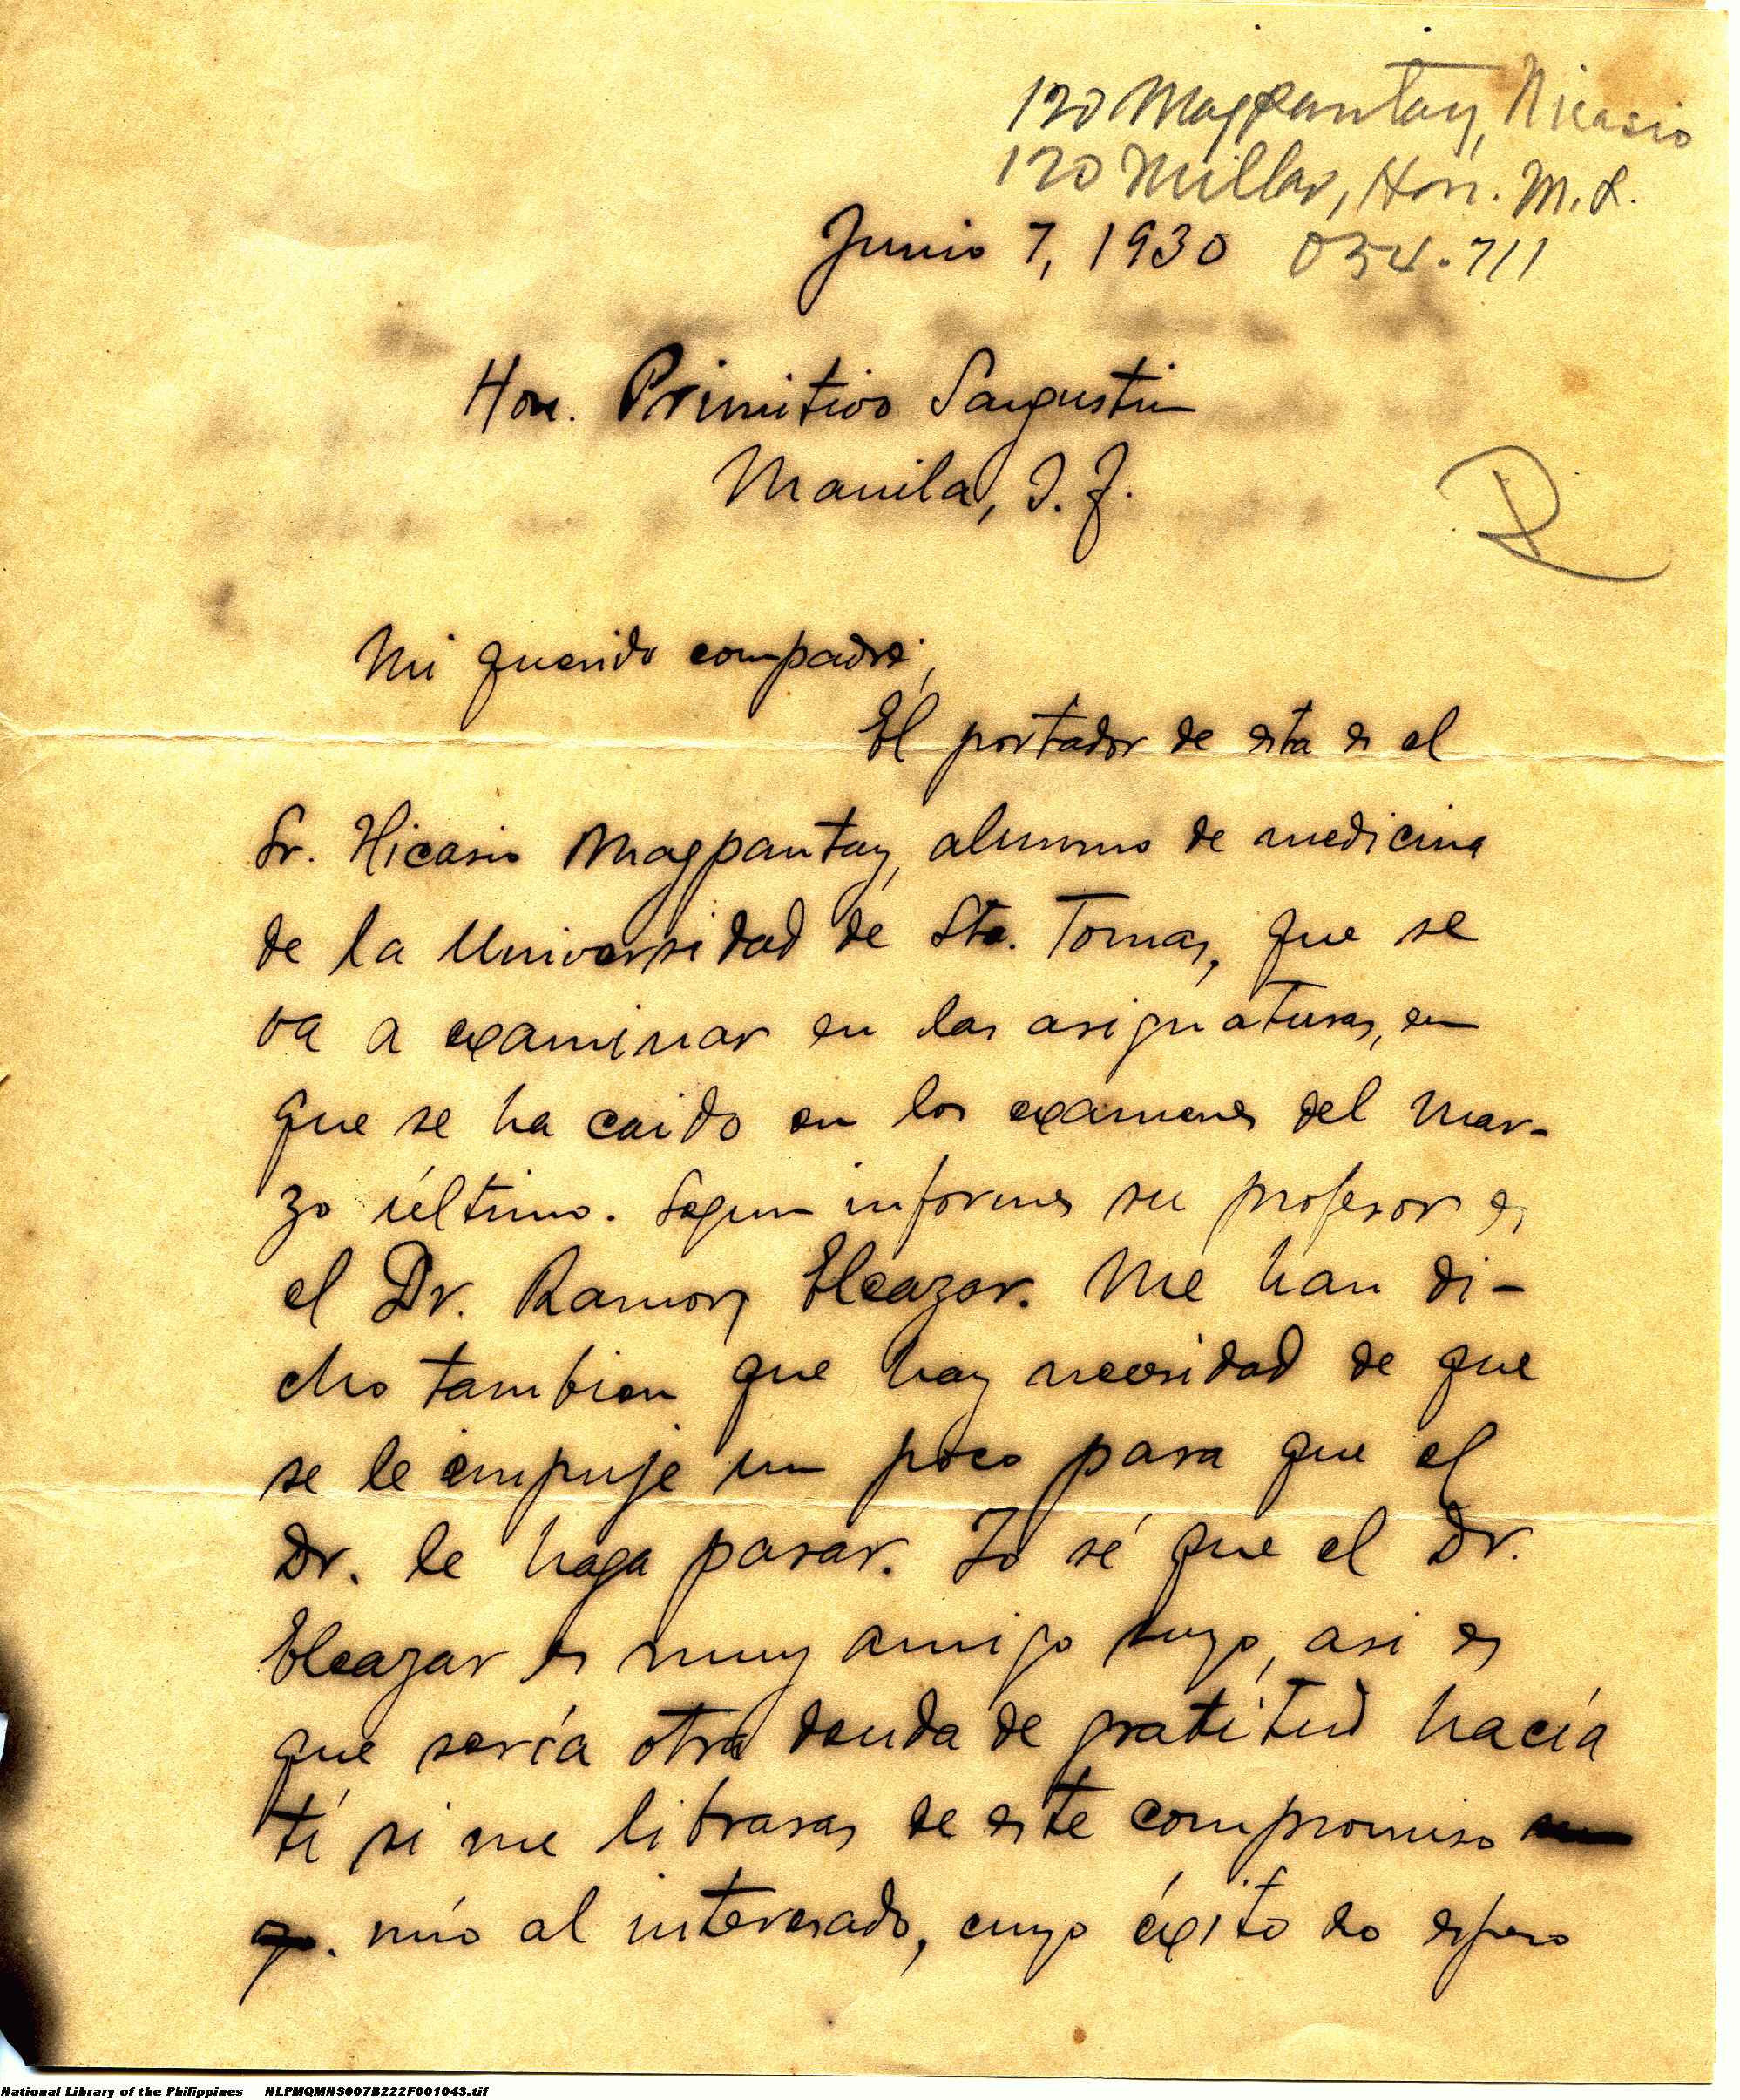 120 Magpantay, Nicasio
120 Millar, Hon. M. L.
Junio 7, 1930 034.711
Hon. Primitivo Sangustin
Manila, I. F.
Mi querido compadre,
El portador de esta es el
Sr. Nicasio Magpantay, alumno de medicina
de la Universidad de Sto. Tomas, que se
va a examinar en las asignaturas, en
que se ha caido en los examenes del mar-
zo último. Segun informes su profesor es
el Dr. Ramon Eleazar. Me han di-
cho tambien que hay necesidad de que
se le empuje un poco para que el
Dr. le haga pasar. Yo sé que el Dr.
Eleazar es muy amigo tuyo, asi es
que sería otra deuda de gratitud hacía
tí si me libraras de este compromiso
mío al interesado, cuyo éxito no espero
National Library of the Philippines NLPMQMNS007B222F001043.tif